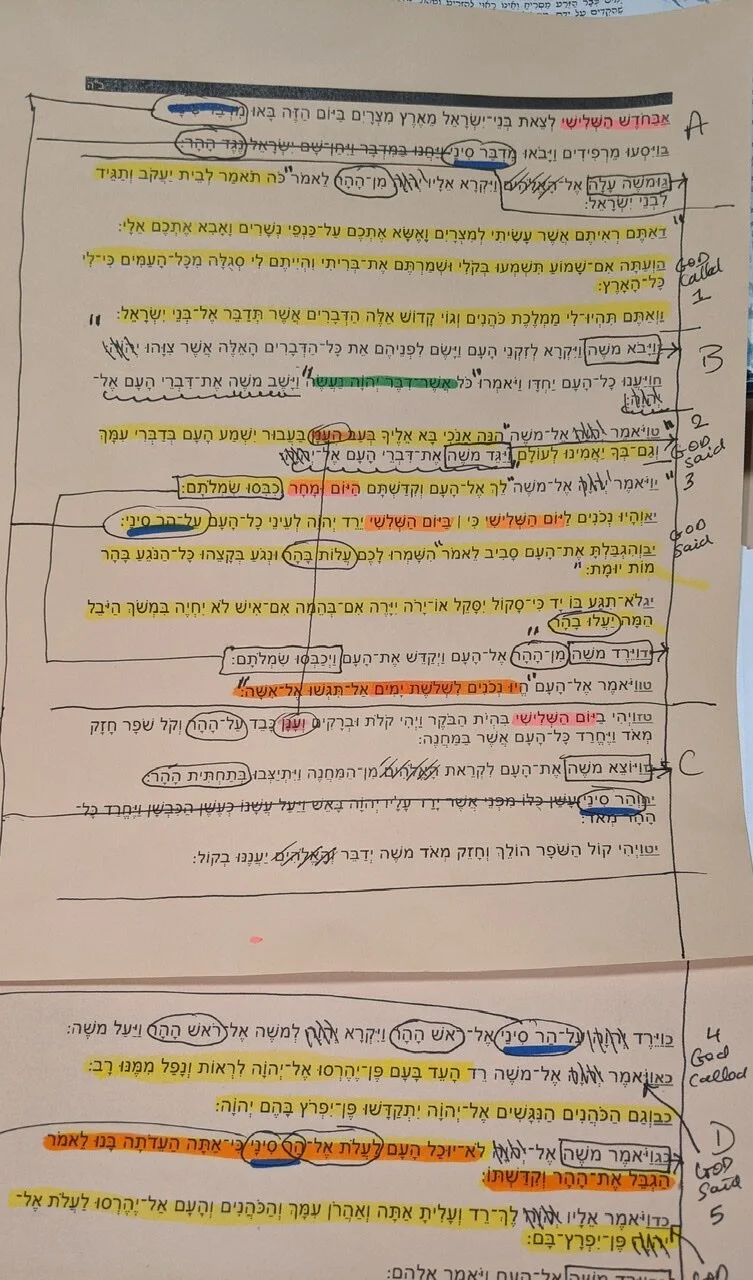 שהקדים על ידה
לה
אבחדש השלישי לצאת בני־ישראל מארץ מצרים ביום הזה באו מדבר סיני: A
בויסעו מרפידים ויבאו מדבר סיני ויחנו במדבר ויחן־שם ישראל נגד ההר:
גומשה עלה אל־האלהים ויקרא אליו יהוה מן־ההר לאמר "כה תאמר לבית יעקב ותגיד
לבני ישראל:
דאתם ראיתם אשר עשיתי למצרים ואשא אתכם על־כנפי נשרים ואבא אתכם אלי:
הועתה אם־שמוע תשמעו בקלי ושמרתם את־בריתי והייתם לי סגלה מכל־העמים כי־לי GOD
כל־הארץ: called
1
וואתם תהיו־לי ממלכת כהנים וגוי קדוש אלה הדברים אשר תדבר אל־בני ישראל: "
זויבא משה ויקרא לזקני העם וישם לפניהם את כל־הדברים האלה אשר צוהו יהוה: B
חויענו כל־העם יחדו ויאמרו "כל אשר־דבר יהוה נעשה" וישב משה את־דברי העם אל־
יהוה:
טויאמר יהוה אל־משה "הנה אנכי בא אליך בעב הענן בעבור ישמע העם בדברי עמך 2
וגם־בך יאמינו לעולם" ויגד משה את־דברי העם אל־יהוה: GOD said
יויאמר יהוה אל־משה "לך אל־העם וקדשתם היום ומחר וכבסו שמלתם: 3
יאוהיו נכנים ליום השלישי כי | ביום השלשי ירד יהוה לעיני כל־העם על־הר סיני: GOD
יבוהגבלת את־העם סביב לאמר "השמרו לכם עלות בהר ונגע בקצהו כל־הנגע בהר said
מות יומת:"
יגלא־תגע בו יד כי־סקול יסקל או־ירה יירה אם־בהמה אם־איש לא יחיה במשך היבל
המה יעלו בהר "
ידוירד משה מן־ההר אל־העם ויקדש את־העם ויכבסו שמלתם:
טוויאמר אל־העם "היו נכנים לשלשת ימים אל־תגשו אל־אשה:"
טזויהי ביום השלישי בהית הבקר ויהי קלת וברקים וענן כבד על־ההר וקל שפר חזק
מאד ויחרד כל־העם אשר במחנה:
יזויוצא משה את־העם לקראת האלהים מן־המחנה ויתיצבו בתחתית ההר: C
יחוהר סיני עשן כלו מפני אשר ירד עליו יהוה באש ויעל עשנו כעשן הכבשן ויחרד כל־
ההר מאד:
יטויהי קול השפר הולך וחזק מאד משה ידבר והאלהים יעננו בקול:
כוירד יהוה על־הר סיני אל־ראש ההר ויקרא יהוה למשה אל־ראש ההר ויעל משה: 4
God
כאויאמר יהוה אל־משה רד העד בעם פן־יהרסו אל־יהוה לראות ונפל ממנו רב: called
כבוגם הכהנים הנגשים אל־יהוה יתקדשו פן־יפרץ בהם יהוה:
כגויאמר משה אל־יהוה לא־יוכל העם לעלת אל־הר סיני כי־אתה העדתה בנו לאמר D
הגבל את־ההר וקדשתו: GOD said
כדויאמר אליו יהוה לך־רד ועלית אתה ואהרן עמך והכהנים והעם אל־יהרסו לעלת אל־ 5
יהוה פן־יפרץ־בם:
כהוירד משה אל־העם ויאמר אלהם: GOD